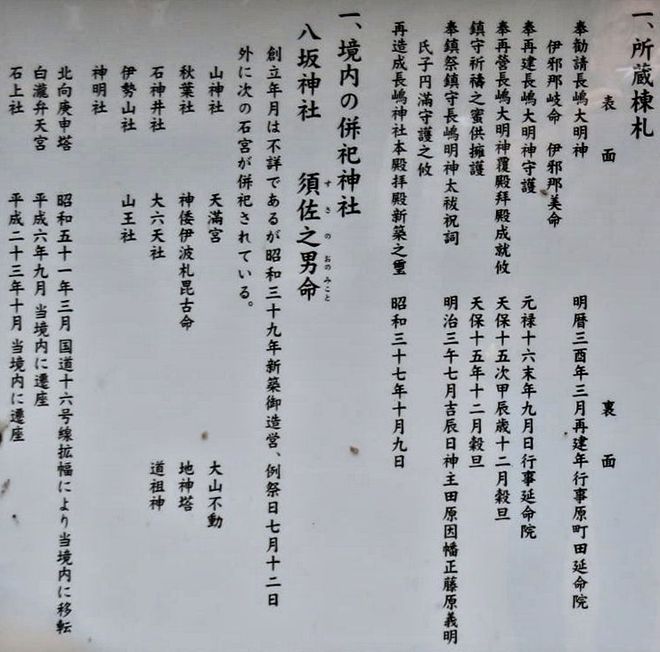 一、所蔵棟札
表面 裏面
奉勧請長嶋大明神 明暦三酉年三月再建年行事原町田延命院
伊邪那岐命 伊邪那美命
奉再建長嶋大明神守護 元禄十六末年九月日行事延命院
奉再営長嶋大明神覆殿拜殿成就攸 天保十五次甲辰歳十二月穀旦
鎮守祈祷之蜜供擁護 天保十五年十二月穀旦
奉鎮祭鎮守長嶋明神太祓祝詞 明治三午七月吉辰日神主田原因幡正藤原義明
氏子円満守護之攸
再造成長嶋神社本殿拜殿新築之璽 昭和三十七年十月九日
一、境内の併祀神社
八坂神社 須佐之男命
すさのおのみこと
創立年月は不詳であるが昭和三十九年新築御造営、例祭日七月十二日
外に次の石宮が併祀されている。
山神社 天満宮 大山不動
秋葉社 神倭伊波礼毘古命 地神塔
石神井社 大六天社 道祖神
伊勢山社 山王社
神明社
北向庚申塔 昭和五十一年三月 国道十六号線拡幅により当境内に移転
白瀧弁天宮 平成六年九月 当境内に遷座
石上社 平成二十三年十月 当境内に遷座